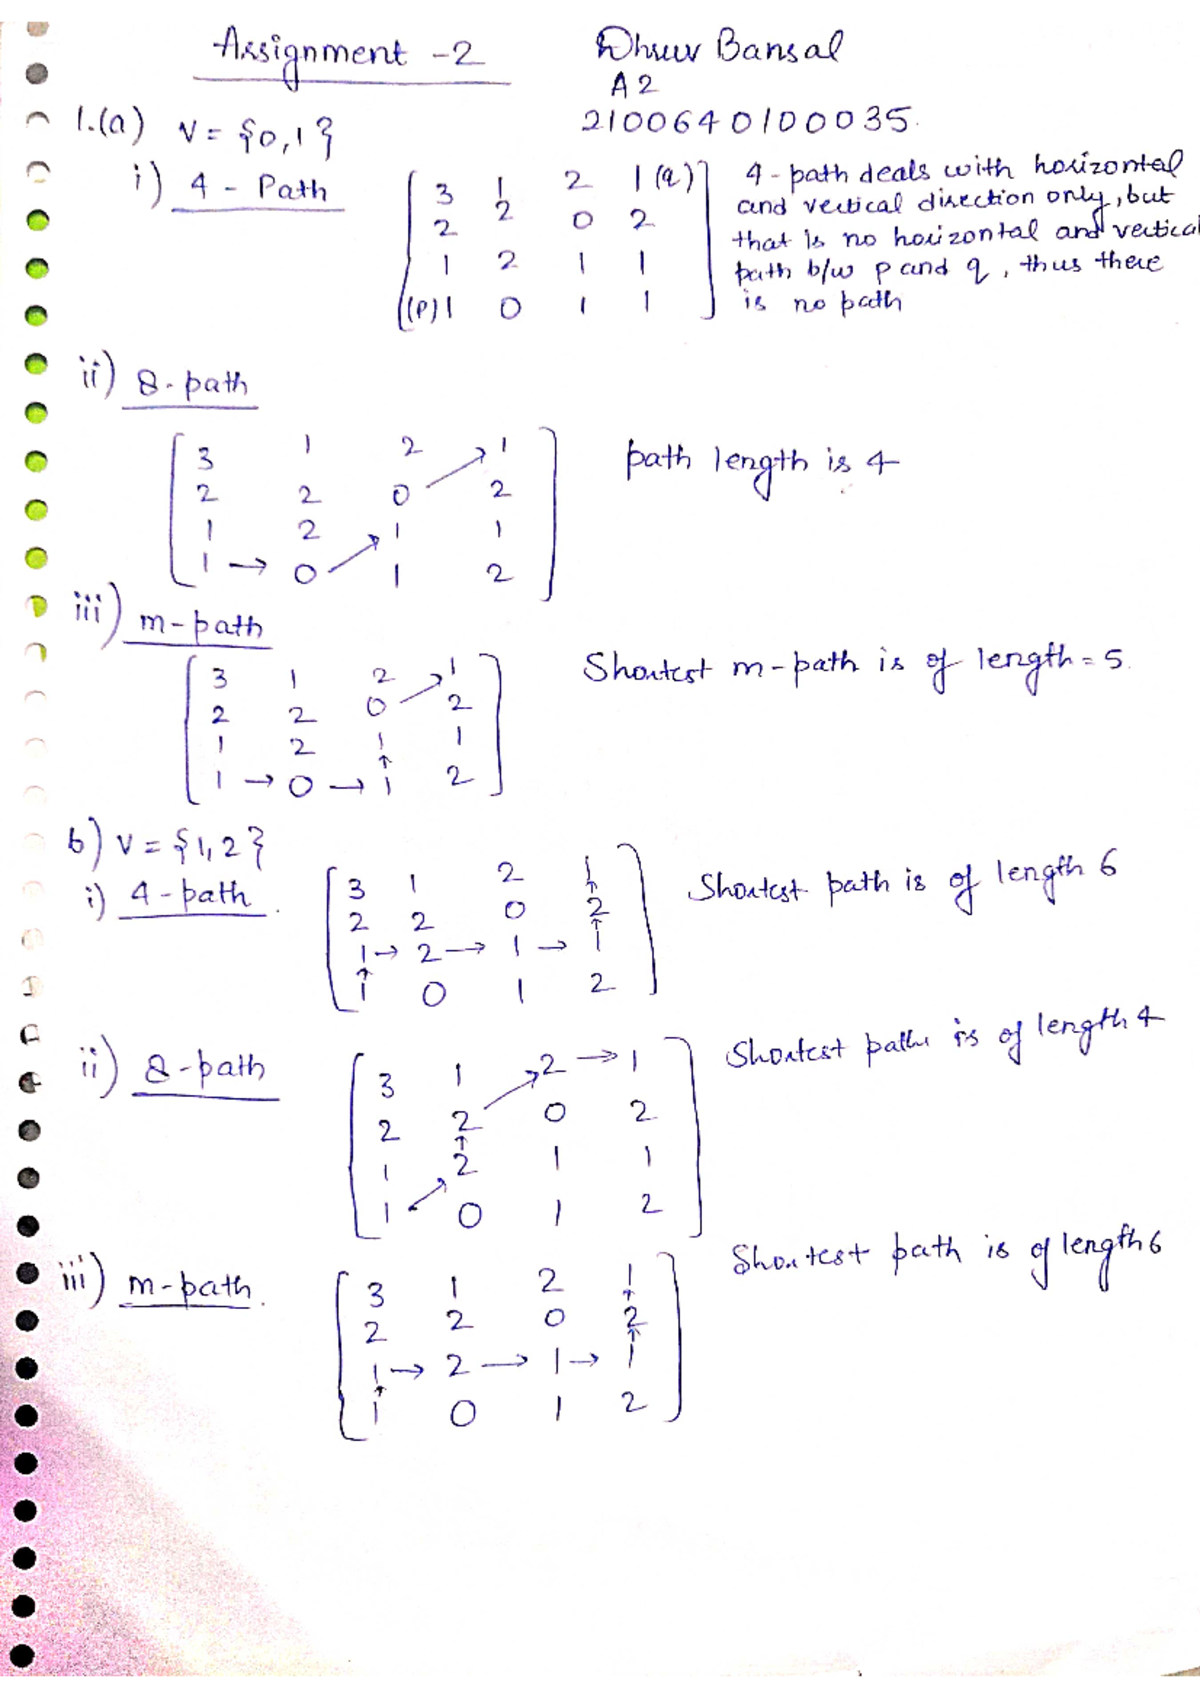 Assignment -2
Dhruv Bansal
A2
21006640100035.
1.(a) V = {0,1}
i) 4 - Path
3 1 2 1 (q)
2 2 0 2
1 2 1 1
(p) 1 0 1 1
4 - path deals with horizontal
and vertical direction only, but
that is no horizontal and vertical
path b/w p and q, thus there
is no path
ii) 8 - path
3 1 2 ↗ 1
2 2 0 2
1 2 ↗ 1 1
1 → 0 1 2
path length is 4
iii) m - path
3 1 2 ↗ 1
2 2 0 2
1 2 1 1
↑
1 → 0 → 1 2
Shortest m-path is of length = 5.
b) V = {1,2}
i) 4 - path.
3 1 2 1
↑
2 2 0 2
↑
1 → 2 → 1 → 1
↑
1 0 1 2
Shortest path is of length 6
ii) 8 - path
3 1 ↗ 2 → 1
2 2 0 2
↑
1 2 1 1
1 ↗ 0 1 2
Shortest path is of length 4
iii) m - path.
3 1 2 1
↑
2 2 0 2
↑
1 → 2 → 1 → 1
↑
1 0 1 2
Shortest path is of length 6